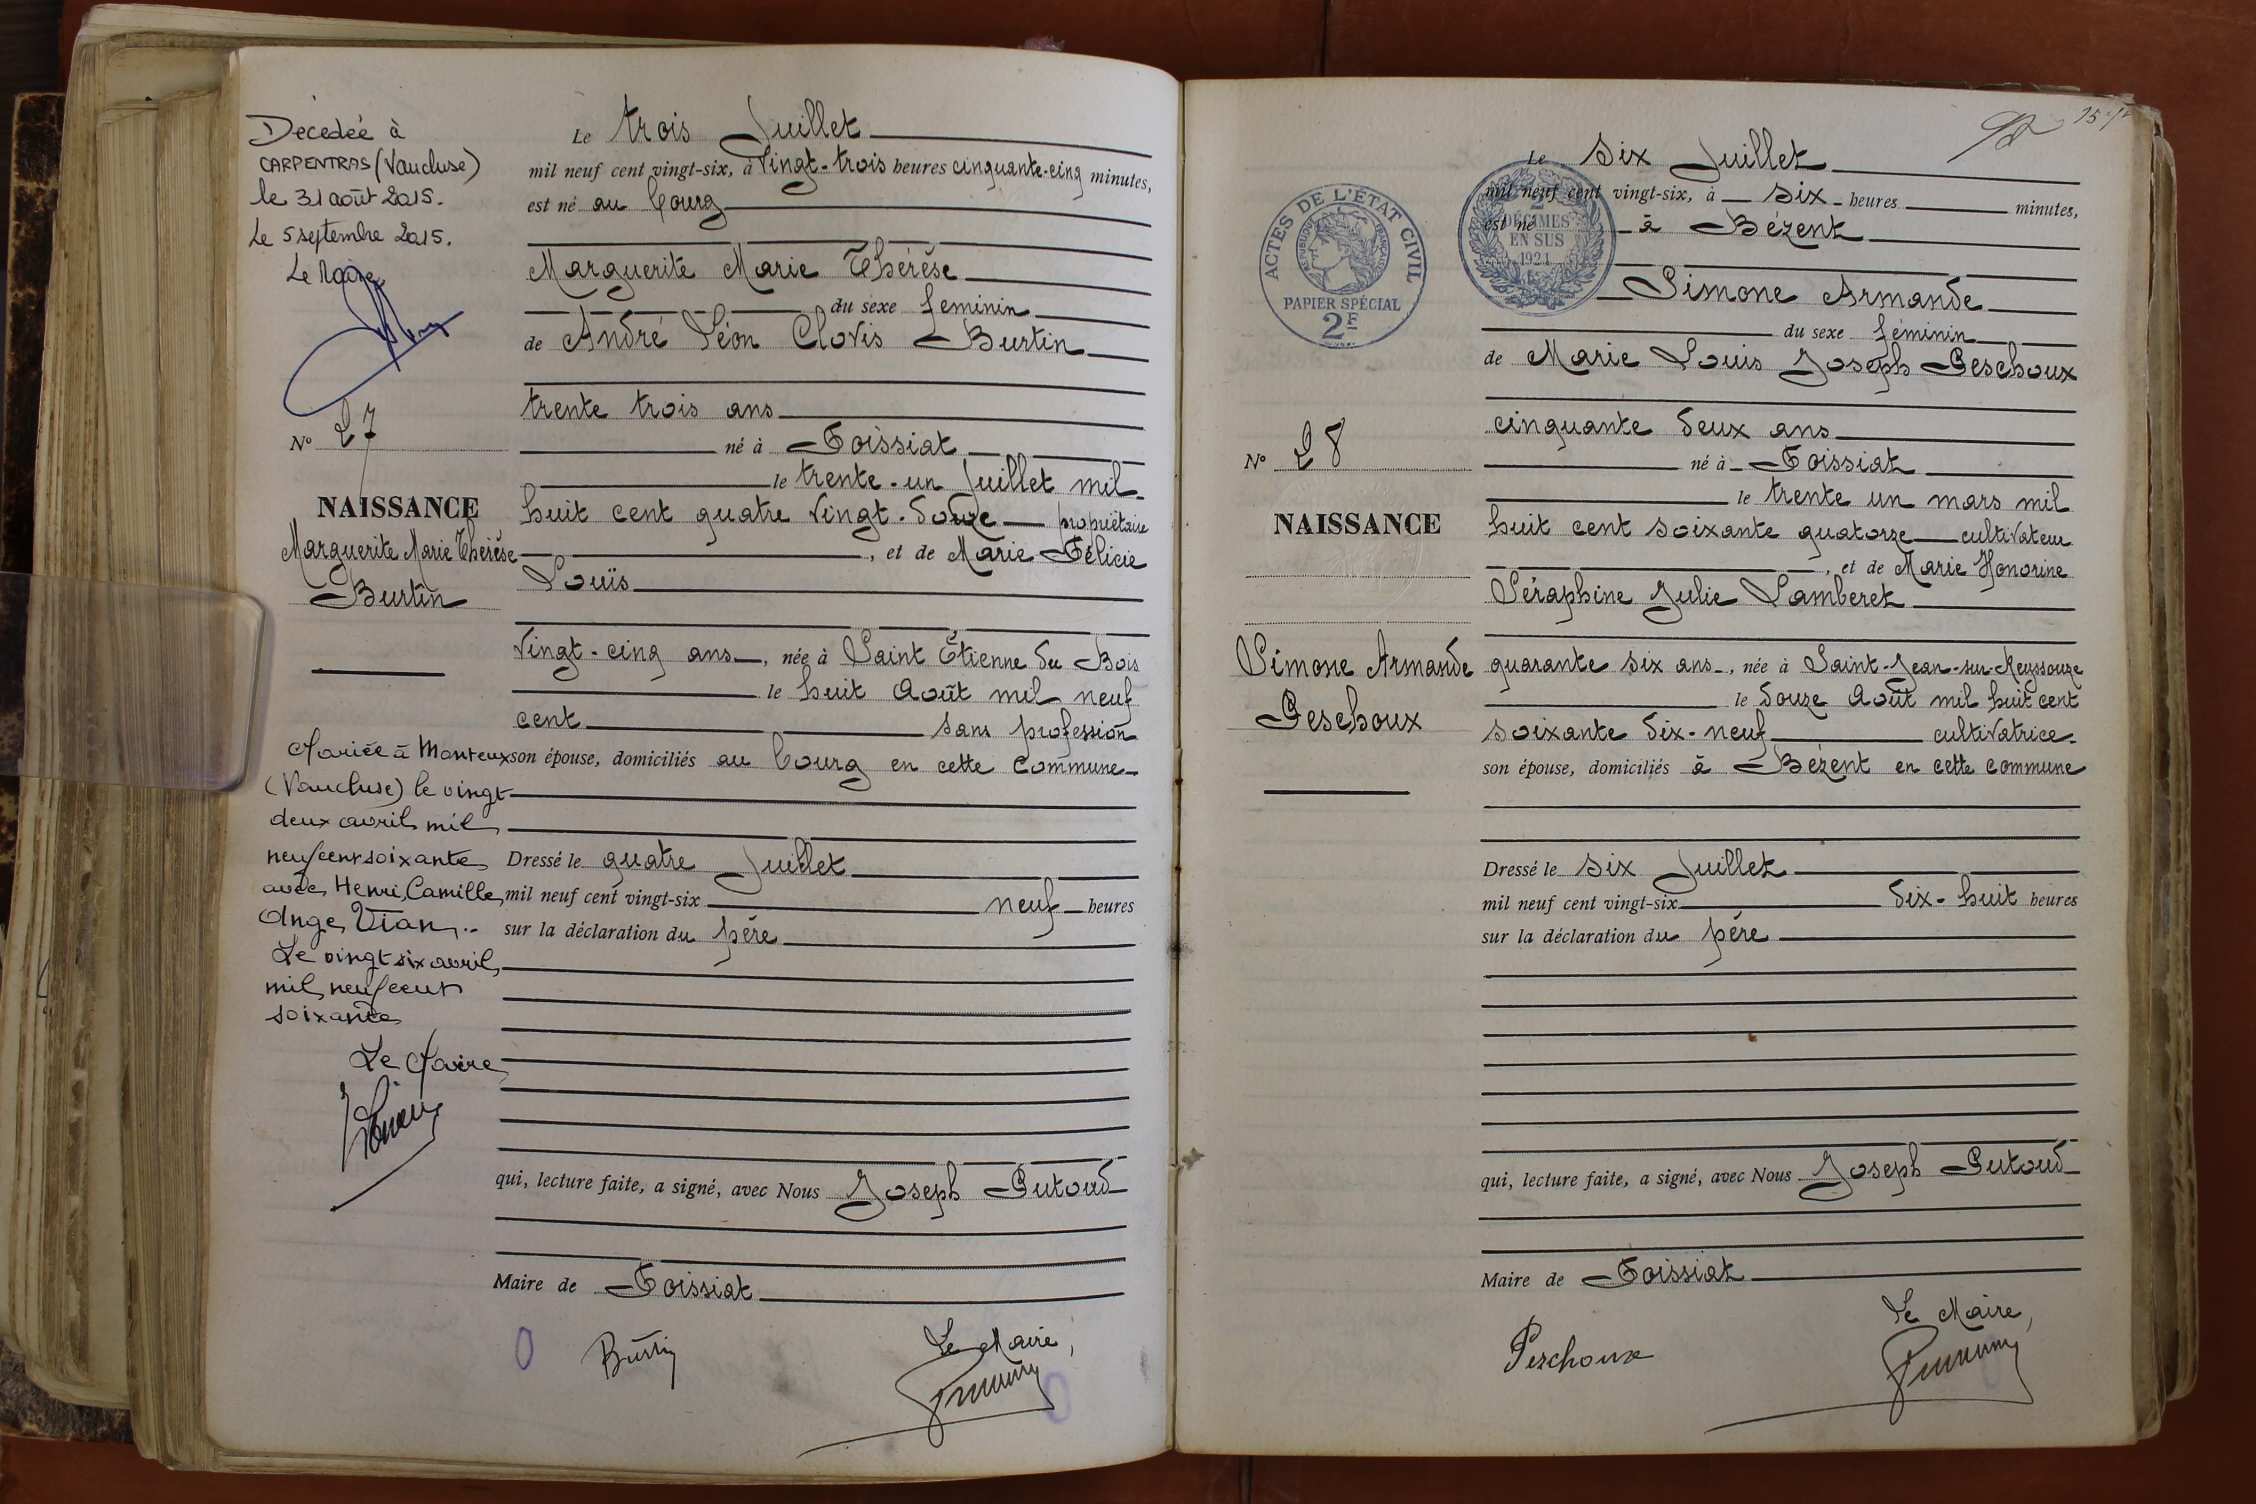 Décédée à
CARPENTRAS (Vaucluse)
le 31 août 2015.
Le 5 septembre 2015.
Le Maire
N° 27
NAISSANCE
Marguerite Marie Thérèse
Burtin
Mariée à Monteux
(Vaucluse) le vingt
deux avril mil
neuf cent soixante
avec Henri, Camille,
Ange, Vian.
Le vingt six avril
mil neuf cent
soixante
Le Maire
Le trois Juillet
mil neuf cent vingt-six, à Vingt-trois heures cinquante-cinq minutes,
est né au bourg
Marguerite Marie Thérèse
du sexe féminin
de André Léon Clovis Burtin
trente trois ans
né à Foissiat
le trente-un Juillet mil
huit cent quatre vingt-douze propriétaire
, et de Marie Félicie
Louis
Vingt-cinq ans, née à Saint Étienne du Bois
le huit Août mil neuf
cent sans profession
son épouse, domiciliés au bourg en cette commune
Dressé le quatre Juillet
mil neuf cent vingt-six neuf heures
sur la déclaration du père
qui, lecture faite, a signé, avec Nous Joseph Putoud
Maire de Foissiat
Le Maire,
Burtin
ACTES DE L'ÉTAT CIVIL
RÉPUBLIQUE FRANÇAISE
PAPIER SPÉCIAL
2F
2
DÉCIMES
EN SUS
1921
N° 28
NAISSANCE
Simone Armande
Peschoux
Le six Juillet
mil neuf cent vingt-six, à six heures minutes,
est né à Bézent
Simone Armande
du sexe féminin
de Marie Louis Joseph Peschoux
cinquante deux ans
né à Foissiat
le trente un mars mil
huit cent soixante quatorze cultivateur
, et de Marie Honorine
Séraphine Julie Lamberet
quarante six ans, née à Saint-Jean-sur-Reyssouze
le douze Août mil huit cent
soixante dix-neuf cultivatrice
son épouse, domiciliés à Bézent en cette commune
Dressé le six Juillet
mil neuf cent vingt-six dix-huit heures
sur la déclaration du père
qui, lecture faite, a signé, avec Nous Joseph Putoud
Maire de Foissiat
Le Maire,
Peschoux